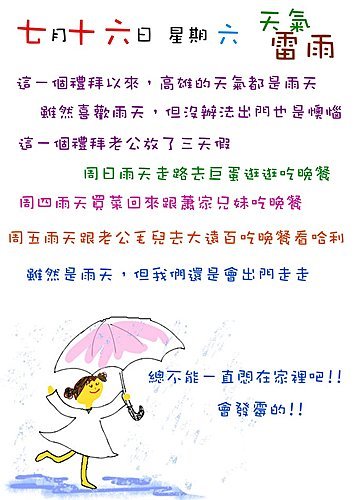 七月十六日 星期六 天氣雷雨
這一個禮拜以來，高雄的天氣都是雨天
雖然喜歡雨天，但沒辦法出門也是懊惱
這一個禮拜老公放了三天假
周日雨天走路去巨蛋逛逛吃晚餐
周四雨天買菜回來跟蕭家兄妹吃晚餐
周五雨天跟老公毛兒去大遠百吃晚餐看哈利
雖然是雨天，但我們還是會出門走走
總不能一直悶在家裡吧!!
會發霉的!!